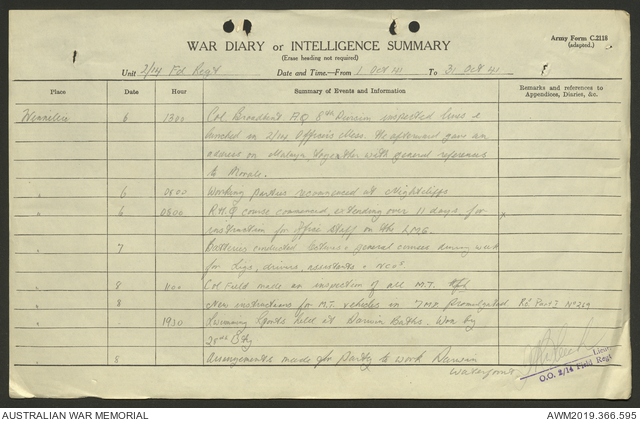 Army Form C.2118
(adapted.)
WAR DIARY or INTELLIGENCE SUMMARY
(Erase heading not required)
Unit 2/14 Fd Regt Date and Time.—From 1 Oct 41 To 31 Oct 41
Place Date Hour Summary of Events and Information Remarks and references to
Appendices, Diaries, &c.
Winnellie 6 1300 Col. HQ Darwin inspected lines &
lunched in 2/14 Officers Mess. He afterward gave an
address on Malaya together with general references
to Morale.
" 6 0800 Working parties recommenced at Nightcliffe
" 6 0800 R.H.Q course commenced, extending over 11 days, for
instruction for Offrs Staff on the L.M.G.
" 7 Batteries conducted general courses during week
for Sigs, drivers, assistants & NCOs
" 8 1100 Col Field made an inspection of all M.T.
" 8 New instructions for M.T. vehicles in 7 M.D. promulgated Ro Part I No 269
" 1930 Swimming Sports held at Darwin Baths. Won by
28th Bty
" 8 Arrangements made for party to work Darwin
Waterfront
Lieut
O.O. 2/14 Field Regt
AUSTRALIAN WAR MEMORIAL AWM2019.366.595